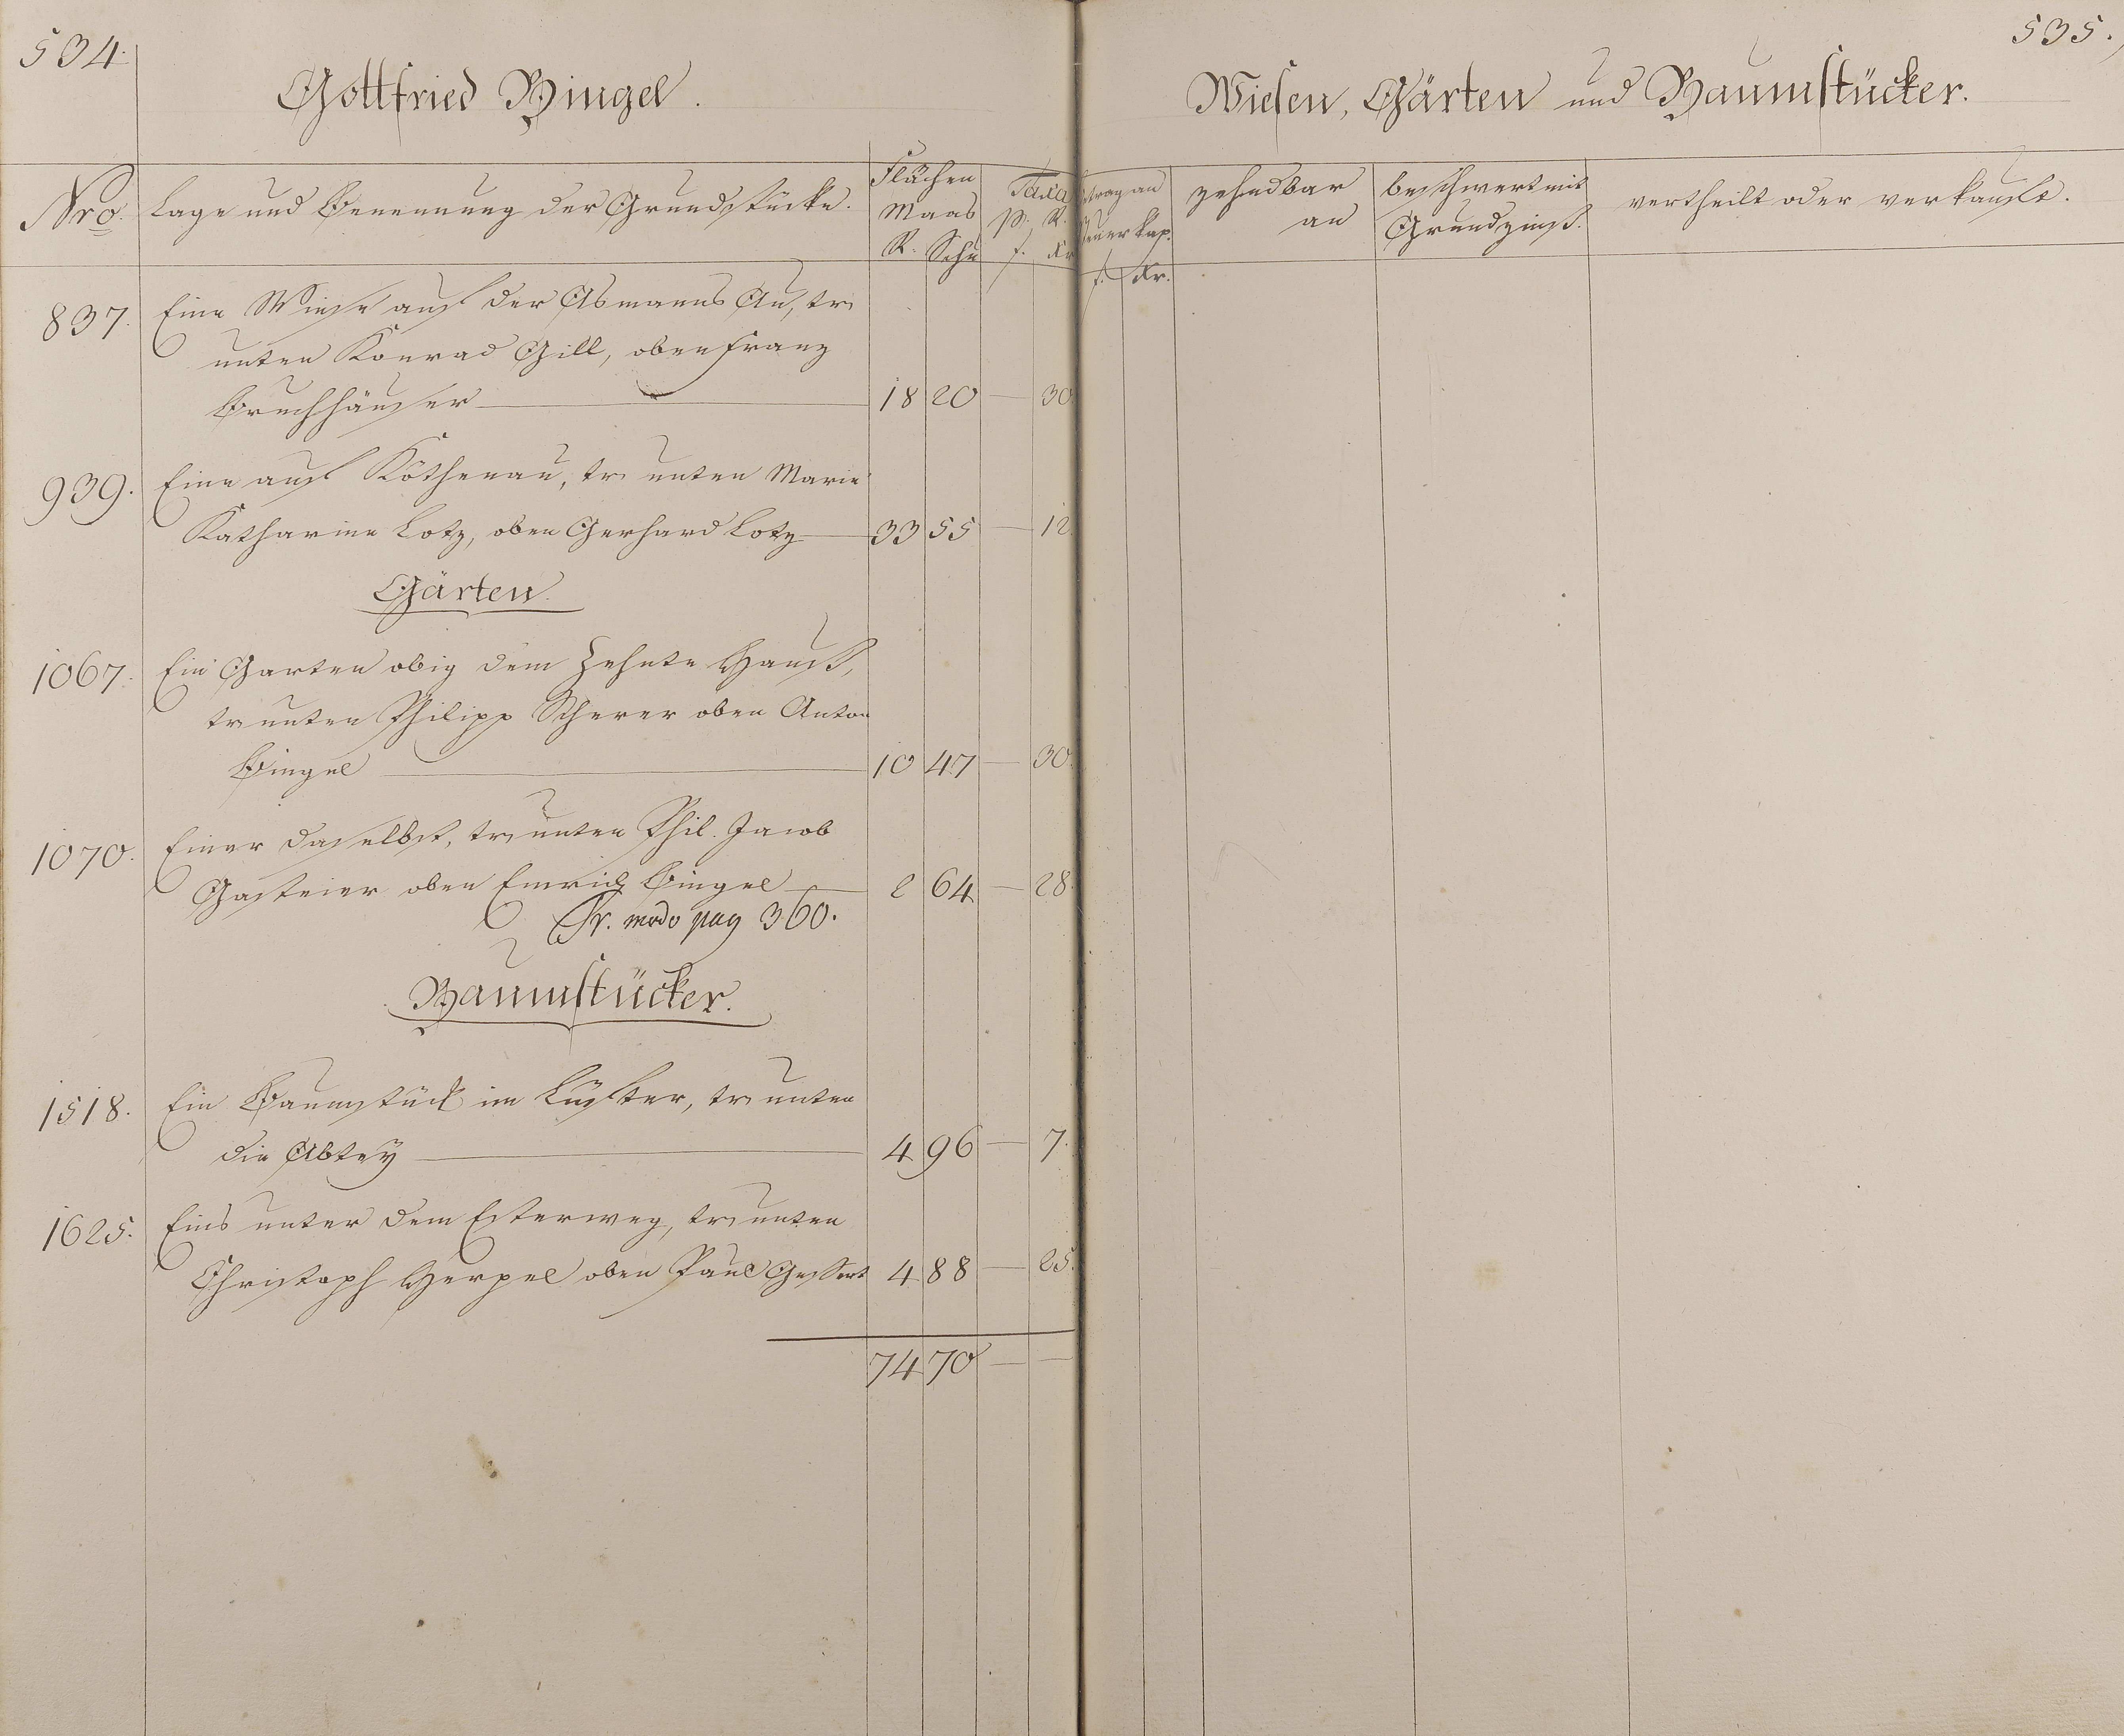 534.
Gottfried Bingel.
Nro. Lage und Benennung der Grundstücke. Flächen Maas R. Schu Taxa p. R. f. Kr
837. Eine Wiese auf der Asmanns Au, tr
unten Konrad Gill, oben Franz
Bruchhäuser 18 20 — 30.
939. Eine auf Köthenau, tr unten Marie
Katharine Lotz, oben Gerhard Lotz 33 55 — 12.
Gärten.
1067. Ein Garten obig dem Zehnte Hauß,
tr unten Philipp Scherer oben Anton
Bingel 10 47 — 30.
1070. Einer daselbst, tr unten Phil. Jacob
Gasteier oben Emrich Bingel 2 64 — 28.
modo pag 360.
Baumstücker.
1518. Ein Baumstück im Lüster, tr unten
die Abtey 4 96 — 7.
1625. Eins unter dem Esterweg, tr unten
Christoph Herpel oben Paul Gessert 4 88 — 25.
74 70 — —
535.
Wiesen, Gärten und Baumstücker.
trag an
euerkap.
f. Kr.
zehndbar
an
beschwert mit
Grundzinß.
vertheilt oder verkauft.